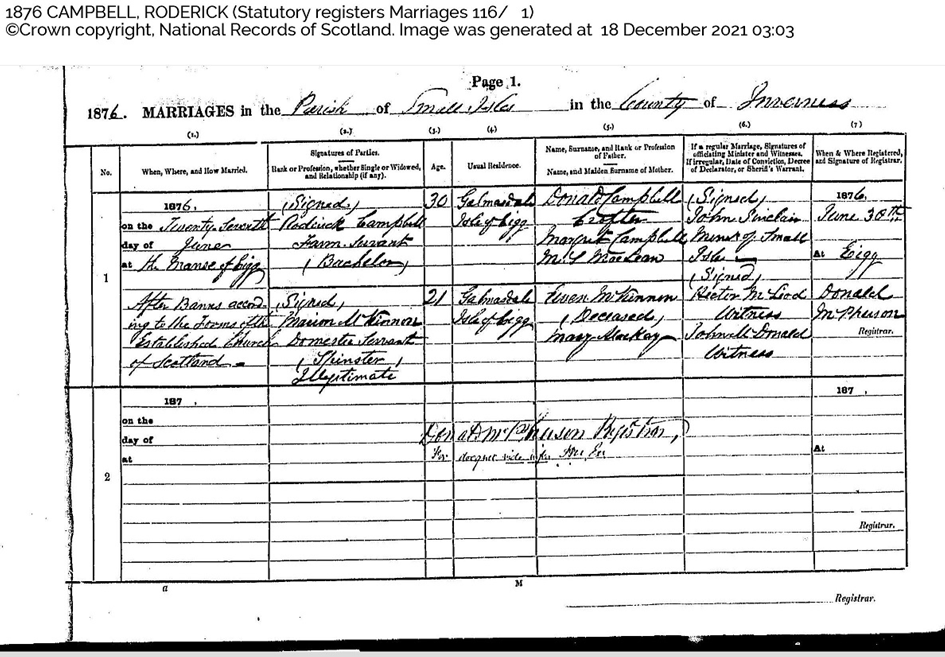 1876 CAMPBELL, RODERICK (Statutory registers Marriages 116/ 1)
©Crown copyright, National Records of Scotland. Image was generated at 18 December 2021 03:03
Page 1.
1876. MARRIAGES in the Parish of Small Isles in the County of Inverness
(1.) (2.) (3.) (4.) (5.) (6.) (7)
No.
When, Where, and How Married.
Signatures of Parties.
Rank or Profession, whether Single or Widowed, and Relationship (if any).
Age.
Usual Residence.
Name, Surname, and Rank or Profession of Father.
Name, and Maiden Surname of Mother.
If a regular Marriage, Signatures of officiating Minister and Witnesses.
If irregular, Date of Conviction, Decree of Declarator, or Sheriff's Warrant.
When & Where Registered, and Signature of Registrar.
1
1876,
on the Twenty Seventh
day of June
at the Manse of Eigg
After Banns accord
ing to the forms of the
Established Church
of Scotland
(Signed)
Roderick Campbell
Farm Servant
(Bachelor)
(Signed)
Marion McKinnon
Domestic Servant
(Spinster)
Illegitimate
30
21
Galmasdale
Isle of Eigg
Galmasdale
Isle of Eigg
Donald Campbell
Crofter
Margret Campbell
M.S. MacLean
Ewen McKinnon
(Deceased)
Mary Mackay
(Signed)
John Sinclair
Minr of Small
Isles
(Signed)
Hector McLeod
Witness
John McDonald
Witness
1876,
June 30th
At Eigg
Donald
McPherson
Registrar.
2
187 ,
on the
day of
at
Donald McPherson Registrar,
187 ,
At
Registrar.
a
M
Registrar.